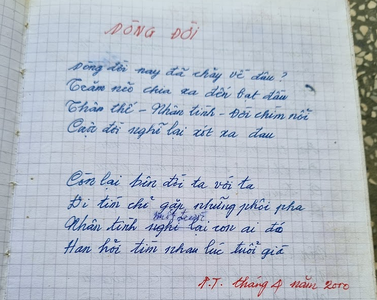 DÒNG ĐỜI
Dòng đời nay đã chảy về đâu?
Trăm nẻo chia xa đến bạt đầu
Thân thế - Nhân tình - Đời chìm nổi
Cuộc đời nghĩ lại xít xa đau
Còn lại bên đời ta với ta
Đi tìm chỉ gặp những phôi pha
Nhân tình nghĩ lại còn ai đó
Han hỏi tìm nhau lúc tuổi già
P.T. tháng 4 năm 2000